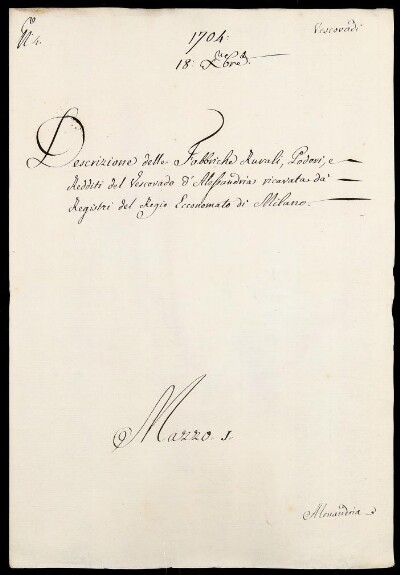 N.º 4.
1704:
Vescovadi
18: Xbre.
Descrizione delle Fabbriche Rurali, Poderi, e
Redditi del Vescovado d'Alessandria ricavata da'
Registri del Regio Economato di Milano.
Mazzo. 1.
Alessandria